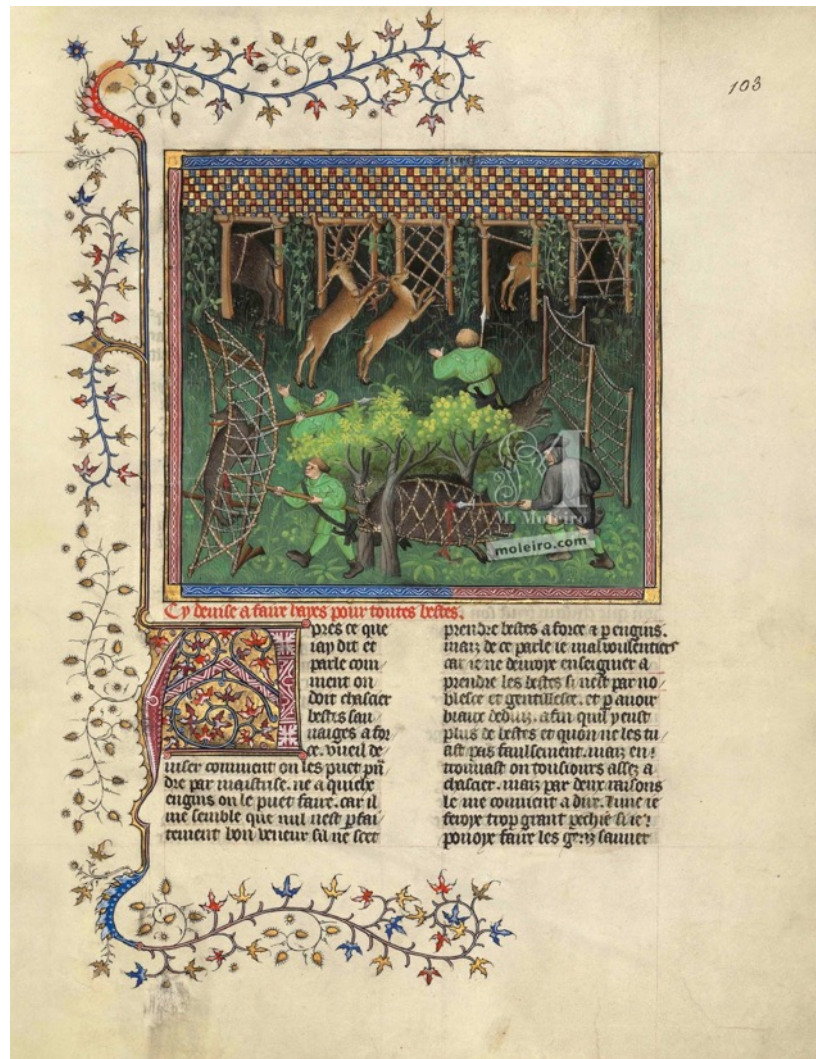 103
M. Moleiro
moleiro.com
Cy devise a faire hayes pour toutes bestes.
Apres ce que
iay dit et
parle com
ment on
doit chascier
bestes sau
uaiges a for
ce. vueil de
uiser comment on les puet pñ
dre par maistrise. ne a quielx
engins on le puet faire. car il
me semble que nul nest pfai
tement bon veneur sil ne scet
prendre bestes a force et p engins.
maiz de ce parle ie mal voulentiers
car ie ne deuroye enseigner a
prendre les bestes si nest par no
blesce et gentillesce. et p auoir
biaux deduiz. afin quil y eust
plus de bestes et quon ne les tu
ast pas faulsement. maiz en
trouuast on tousiours assez a
chascier. maiz par deux raisons
le me conuient a dire. lune ie
feroye trop grant pechie si ie
pouoye faire les genz sauuer